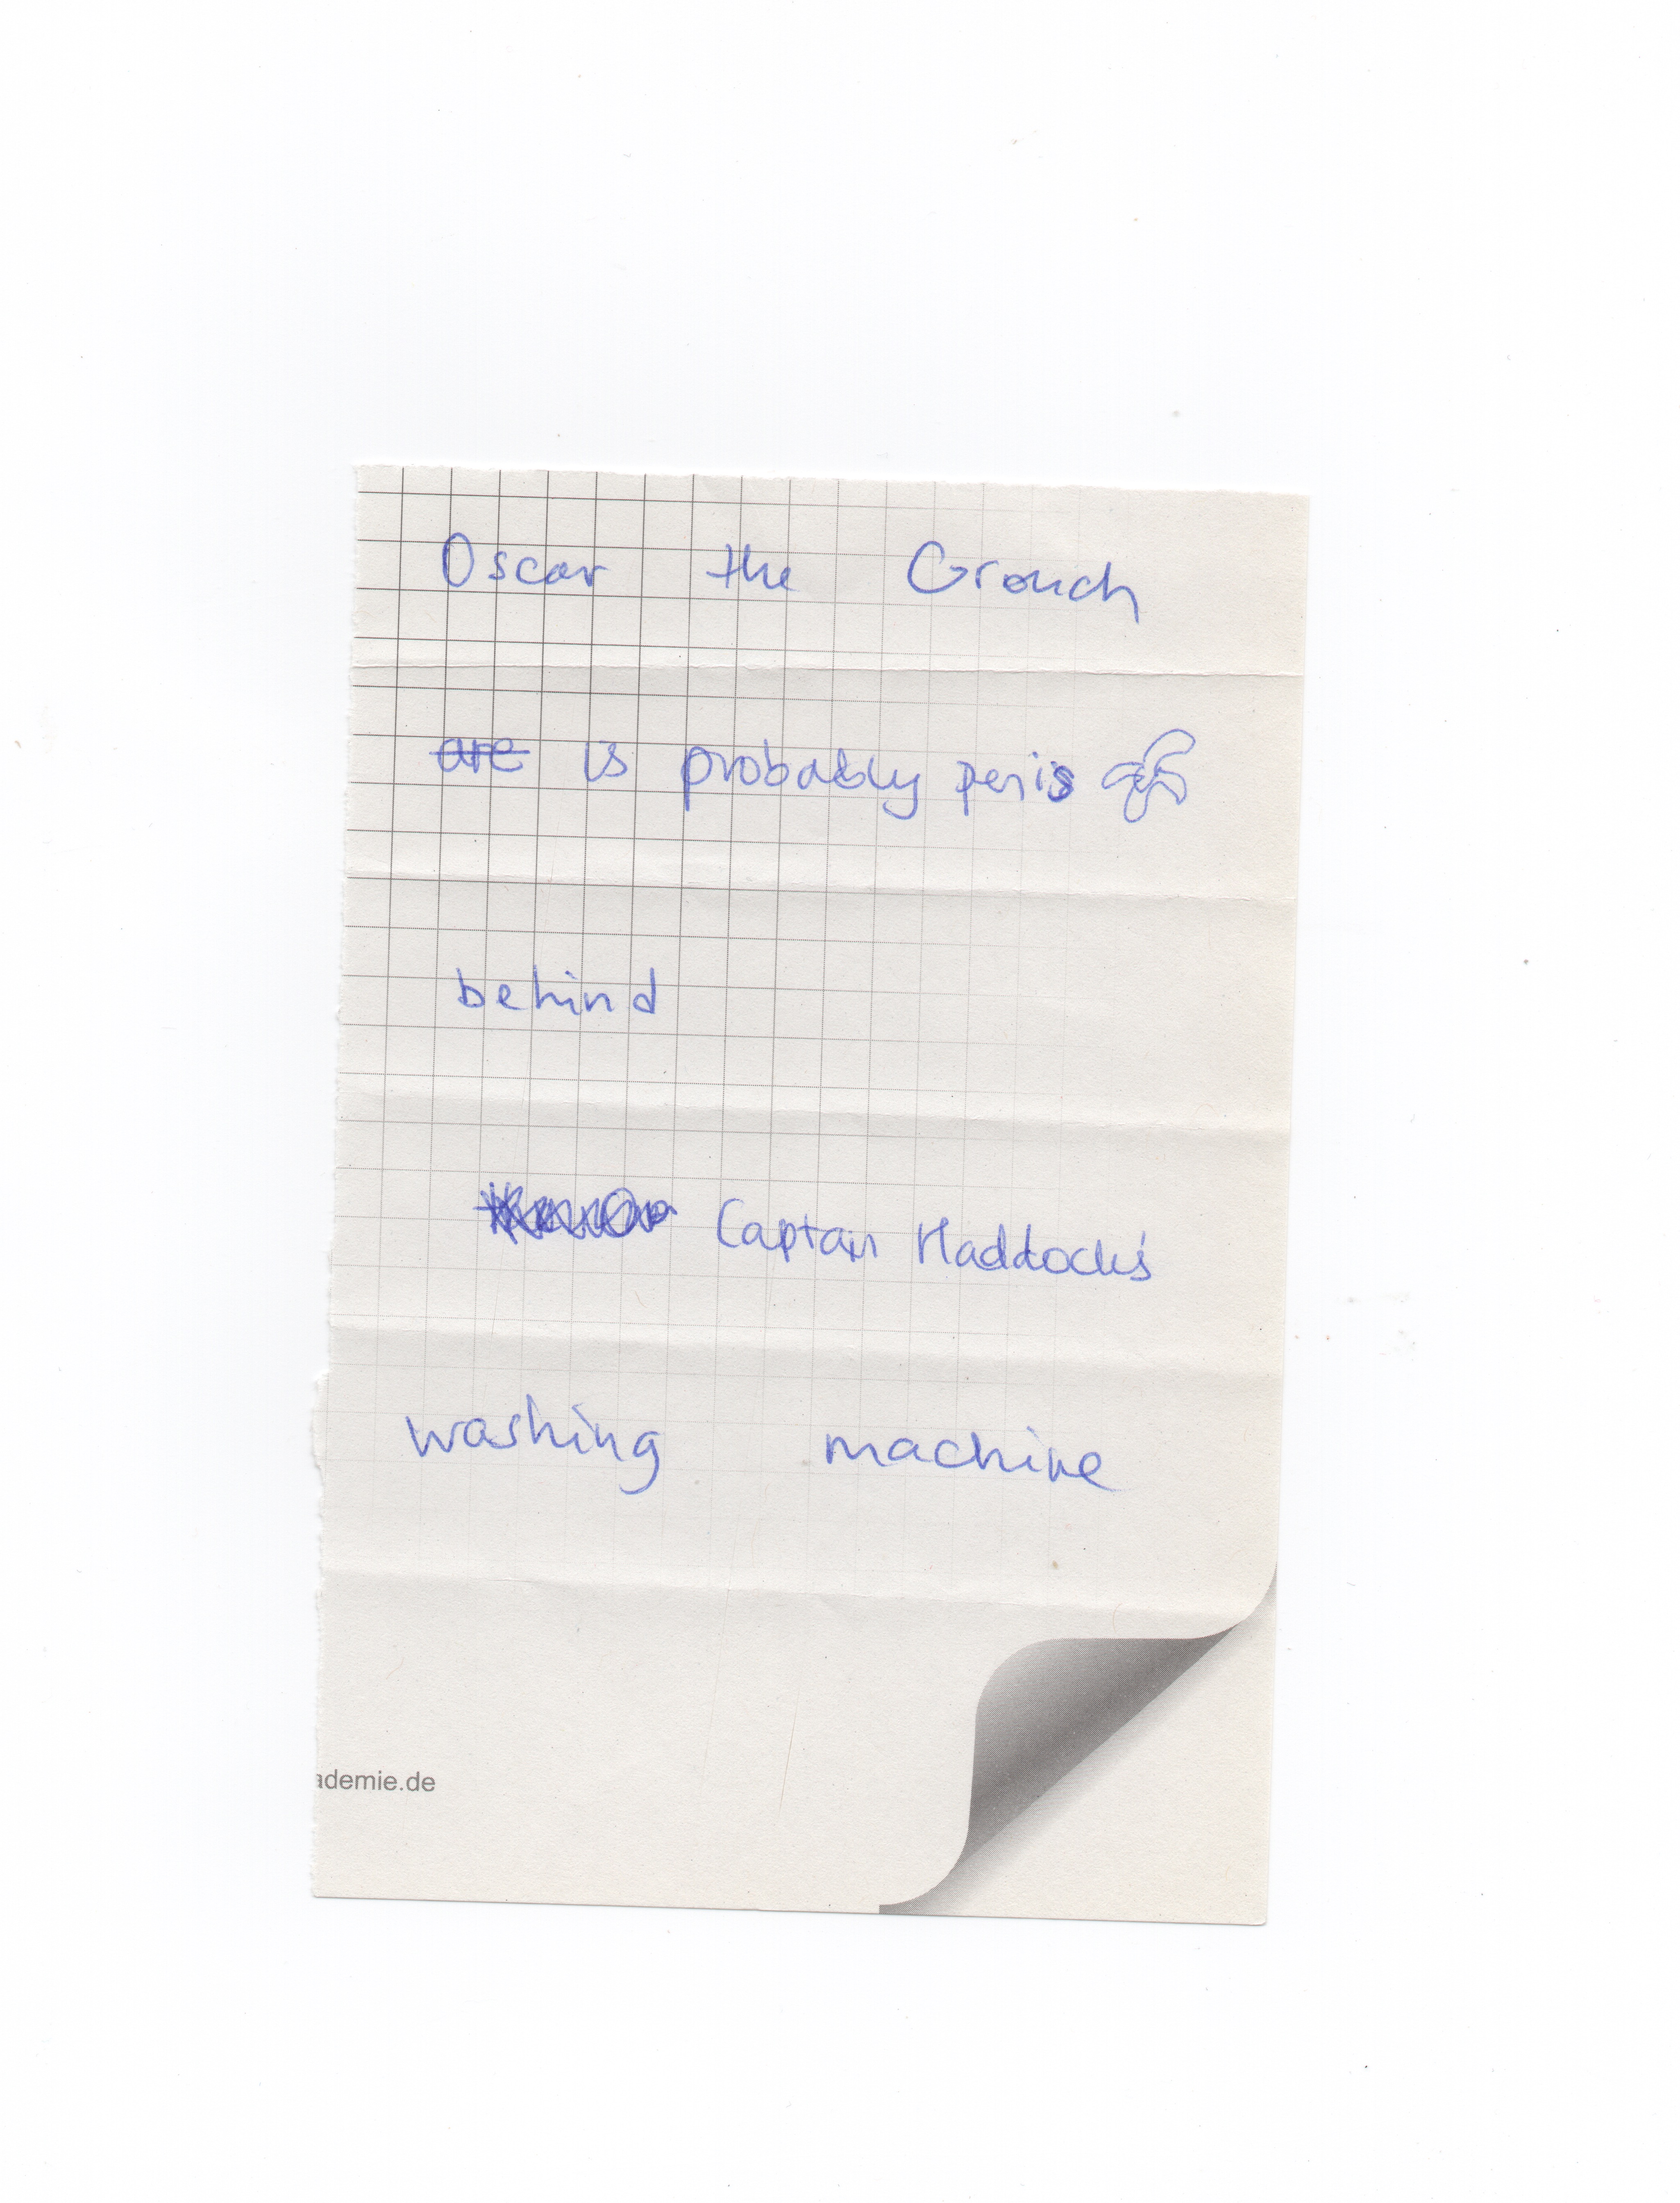 Oscar the Grouch
are is probably penis
behind
Captain Haddock's
washing machine
ademie.de